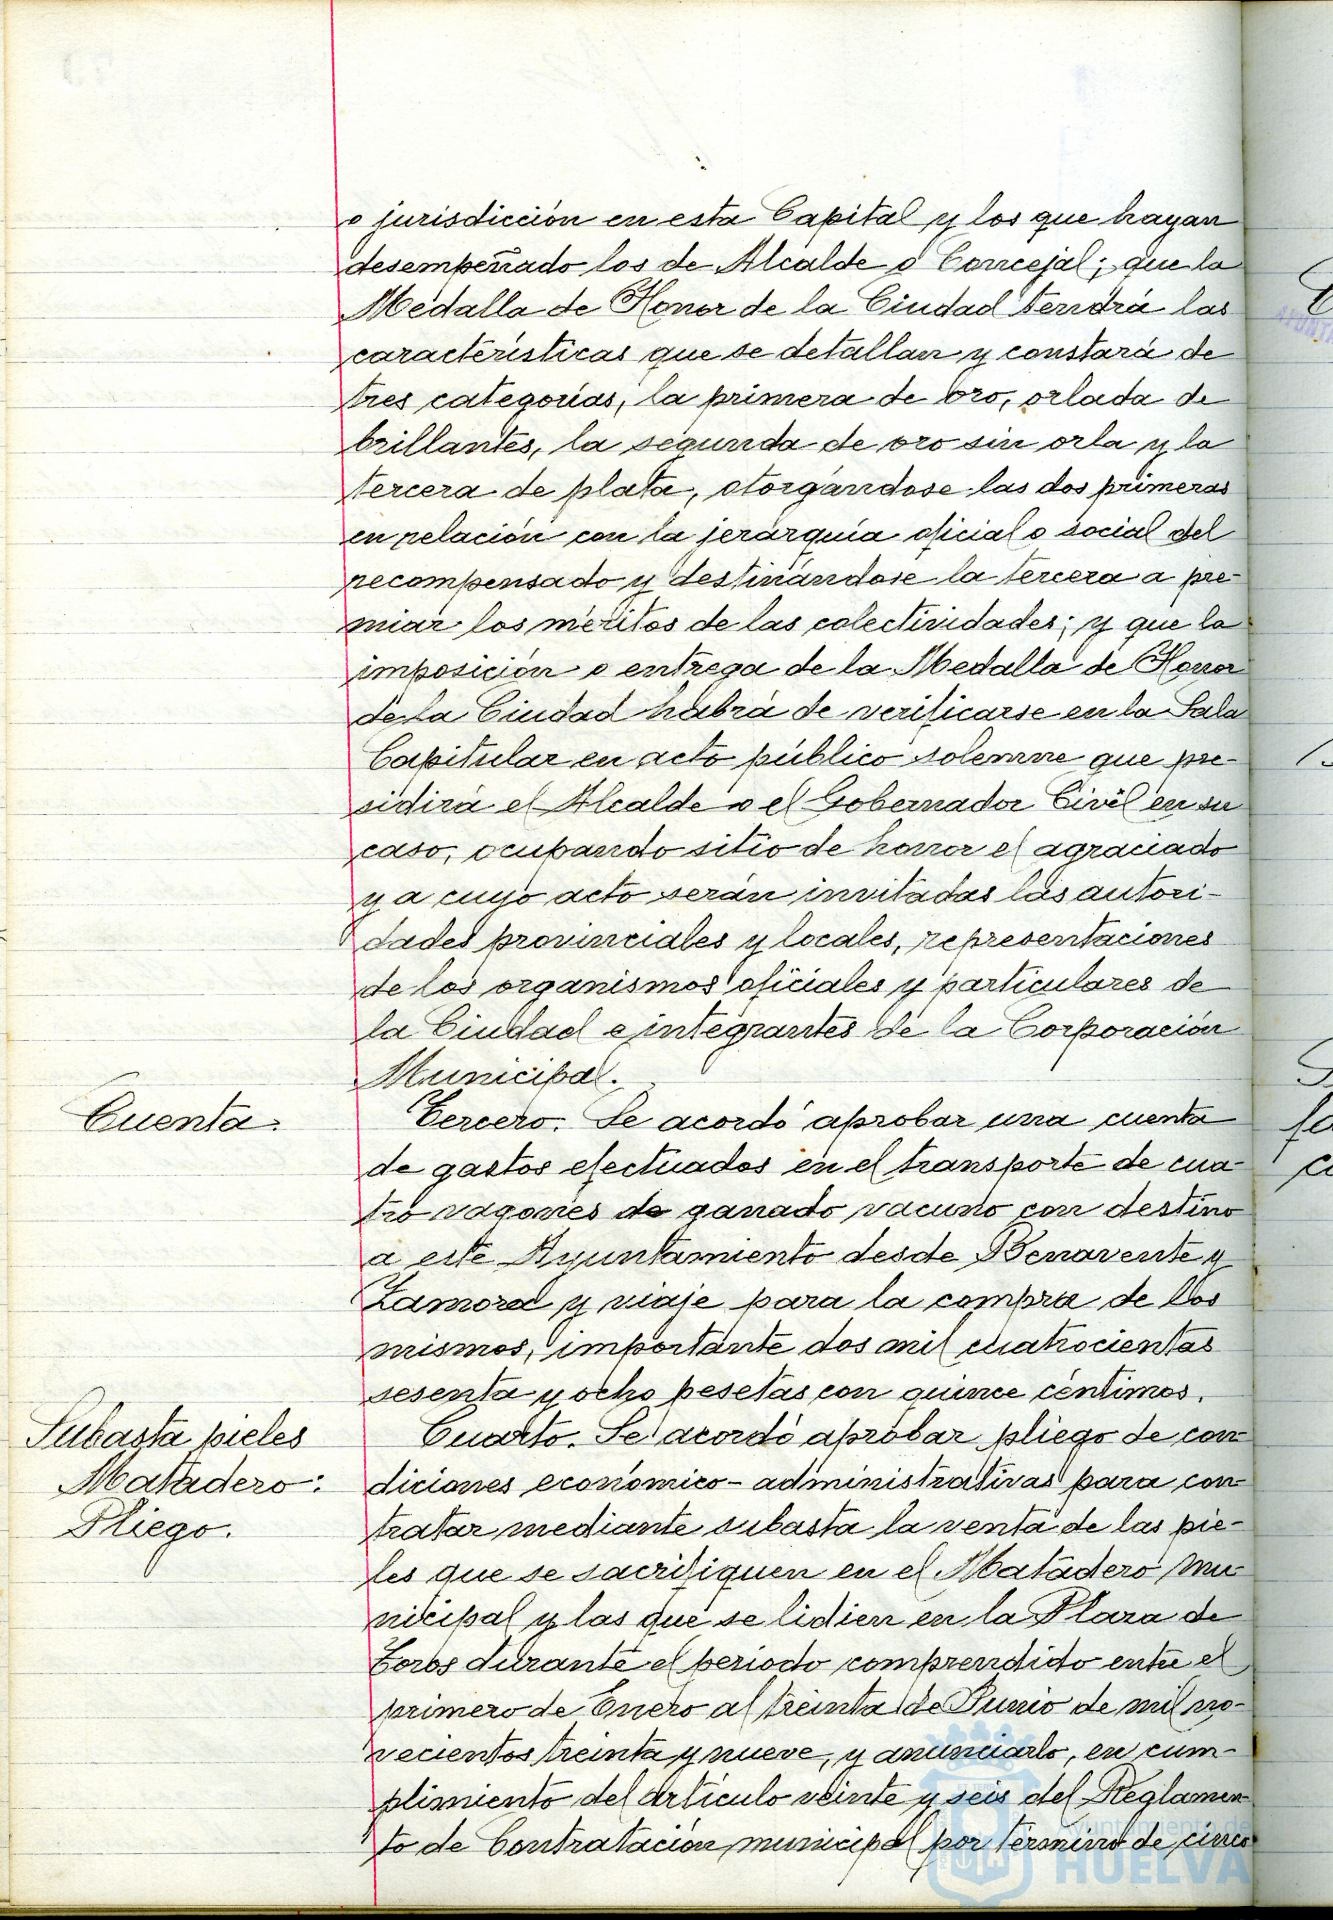 o jurisdicción en esta Capital y los que hayan
desempeñado los de Alcalde o Concejal; que la
Medalla de Honor de la Ciudad tendrá las
características que se detallan y constará de
tres categorías, la primera de oro, orlada de
brillantes, la segunda de oro sin orla y la
tercera de plata, otorgándose las dos primeras
en relación con la jerarquía oficial o social del
recompensado y destinándose la tercera a pre-
miar los méritos de las colectividades; y que la
imposición o entrega de la Medalla de Honor
de la Ciudad habrá de verificarse en la Sala
Capitular en acto público solemne que pre-
sidirá el Alcalde o el Gobernador Civil en su
caso, ocupando sitio de honor el agraciado
y a cuyo acto serán invitadas las autori-
dades provinciales y locales, representaciones
de los organismos oficiales y particulares de
la Ciudad e integrantes de la Corporación
Municipal.
Cuenta.
Tercero. Se acordó aprobar una cuenta
de gastos efectuados en el transporte de cua-
tro vagones de ganado vacuno con destino
a este Ayuntamiento desde Benavente y
Zamora y viaje para la compra de los
mismos, importante dos mil cuatrocientas
sesenta y ocho pesetas con quince céntimos.
Subasta pieles
Matadero:
Pliego.
Cuarto. Se acordó aprobar pliego de con-
diciones económico-administrativas para con-
tratar mediante subasta la venta de las pie-
les que se sacrifiquen en el Matadero Mu-
nicipal y las que se lidien en la Plaza de
Toros durante el periodo comprendido entre el
primero de Enero al treinta de Junio de mil no-
vecientos treinta y nueve, y anunciarlo, en cum-
plimiento del artículo veinte y seis del Reglamen-
to de Contratación municipal por término de cinco
Ayuntamiento de
HUELVA